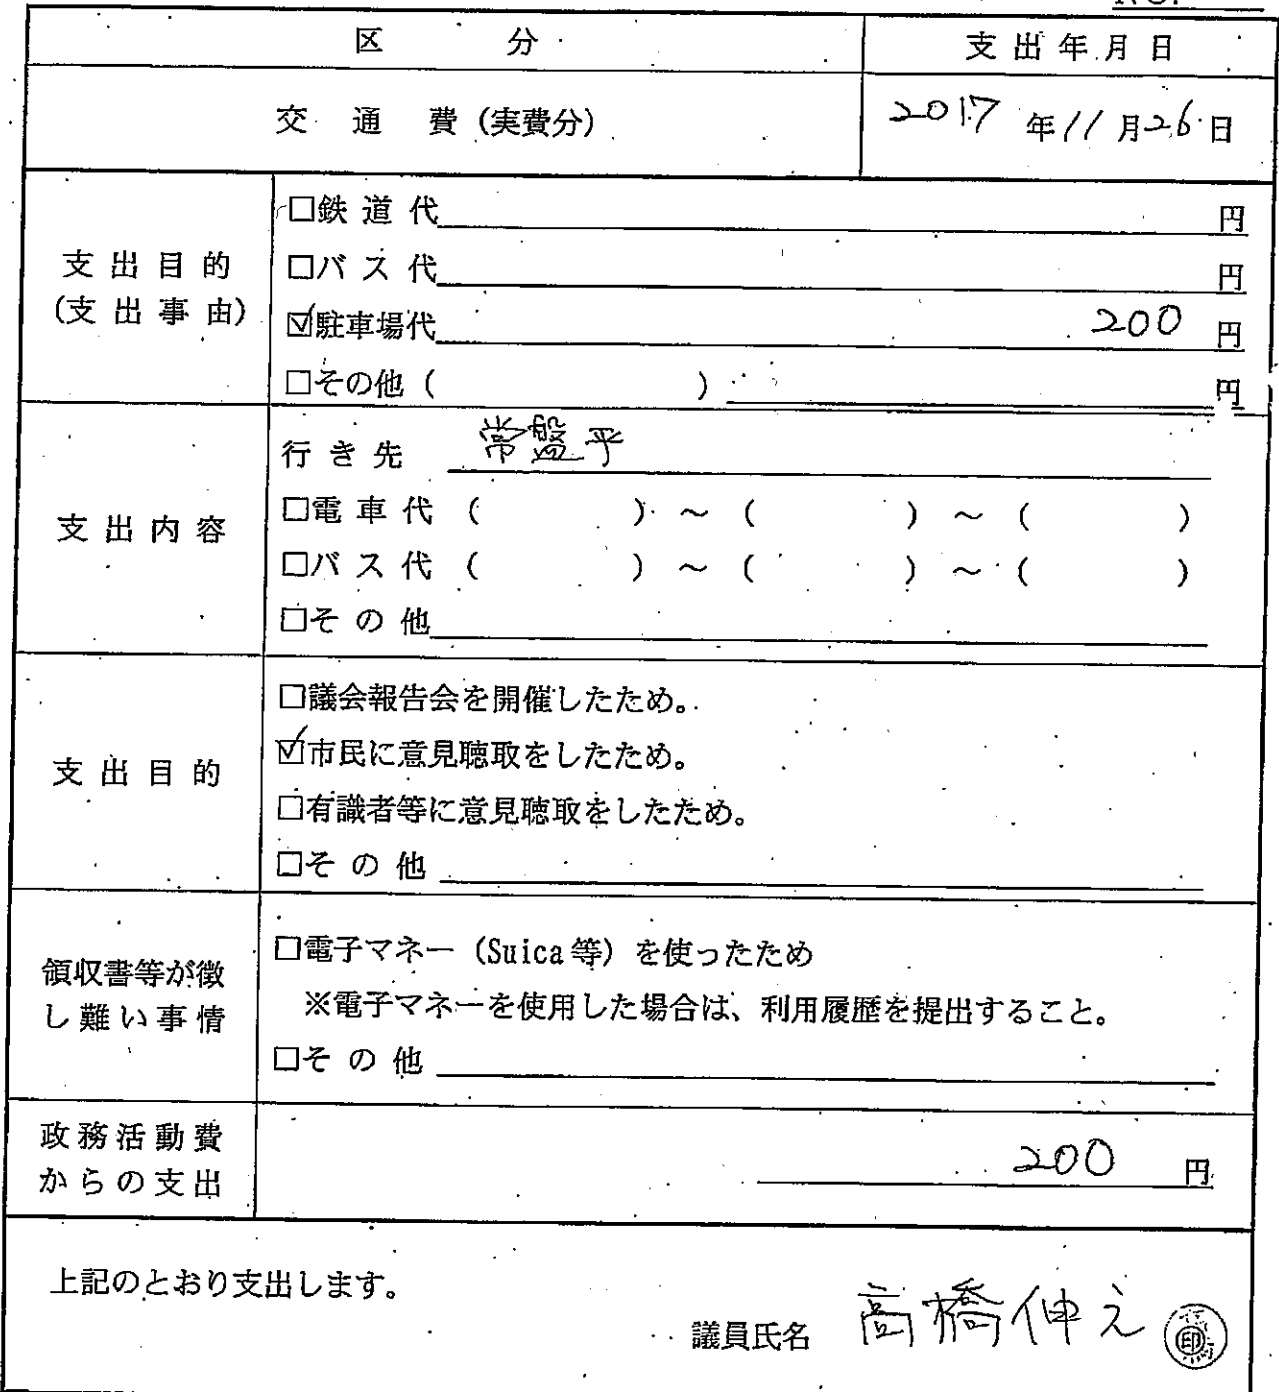 No.
区 分 支出年月日
交通費（実費分） 2017年11月26日
支出目的
（支出事由）
□鉄道代 円
□バス代 円
☑駐車場代 200 円
□その他（ ） 円
支出内容
行き先 常盤平
□電車代（ ）～（ ）～（ ）
□バス代（ ）～（ ）～（ ）
□その他
支出目的
□議会報告会を開催したため。
☑市民に意見聴取をしたため。
□有識者等に意見聴取をしたため。
□その他
領収書等が徴
し難い事情
□電子マネー（Suica等）を使ったため
※電子マネーを使用した場合は、利用履歴を提出すること。
□その他
政務活動費
からの支出
200 円
上記のとおり支出します。
議員氏名 高橋伸之 印